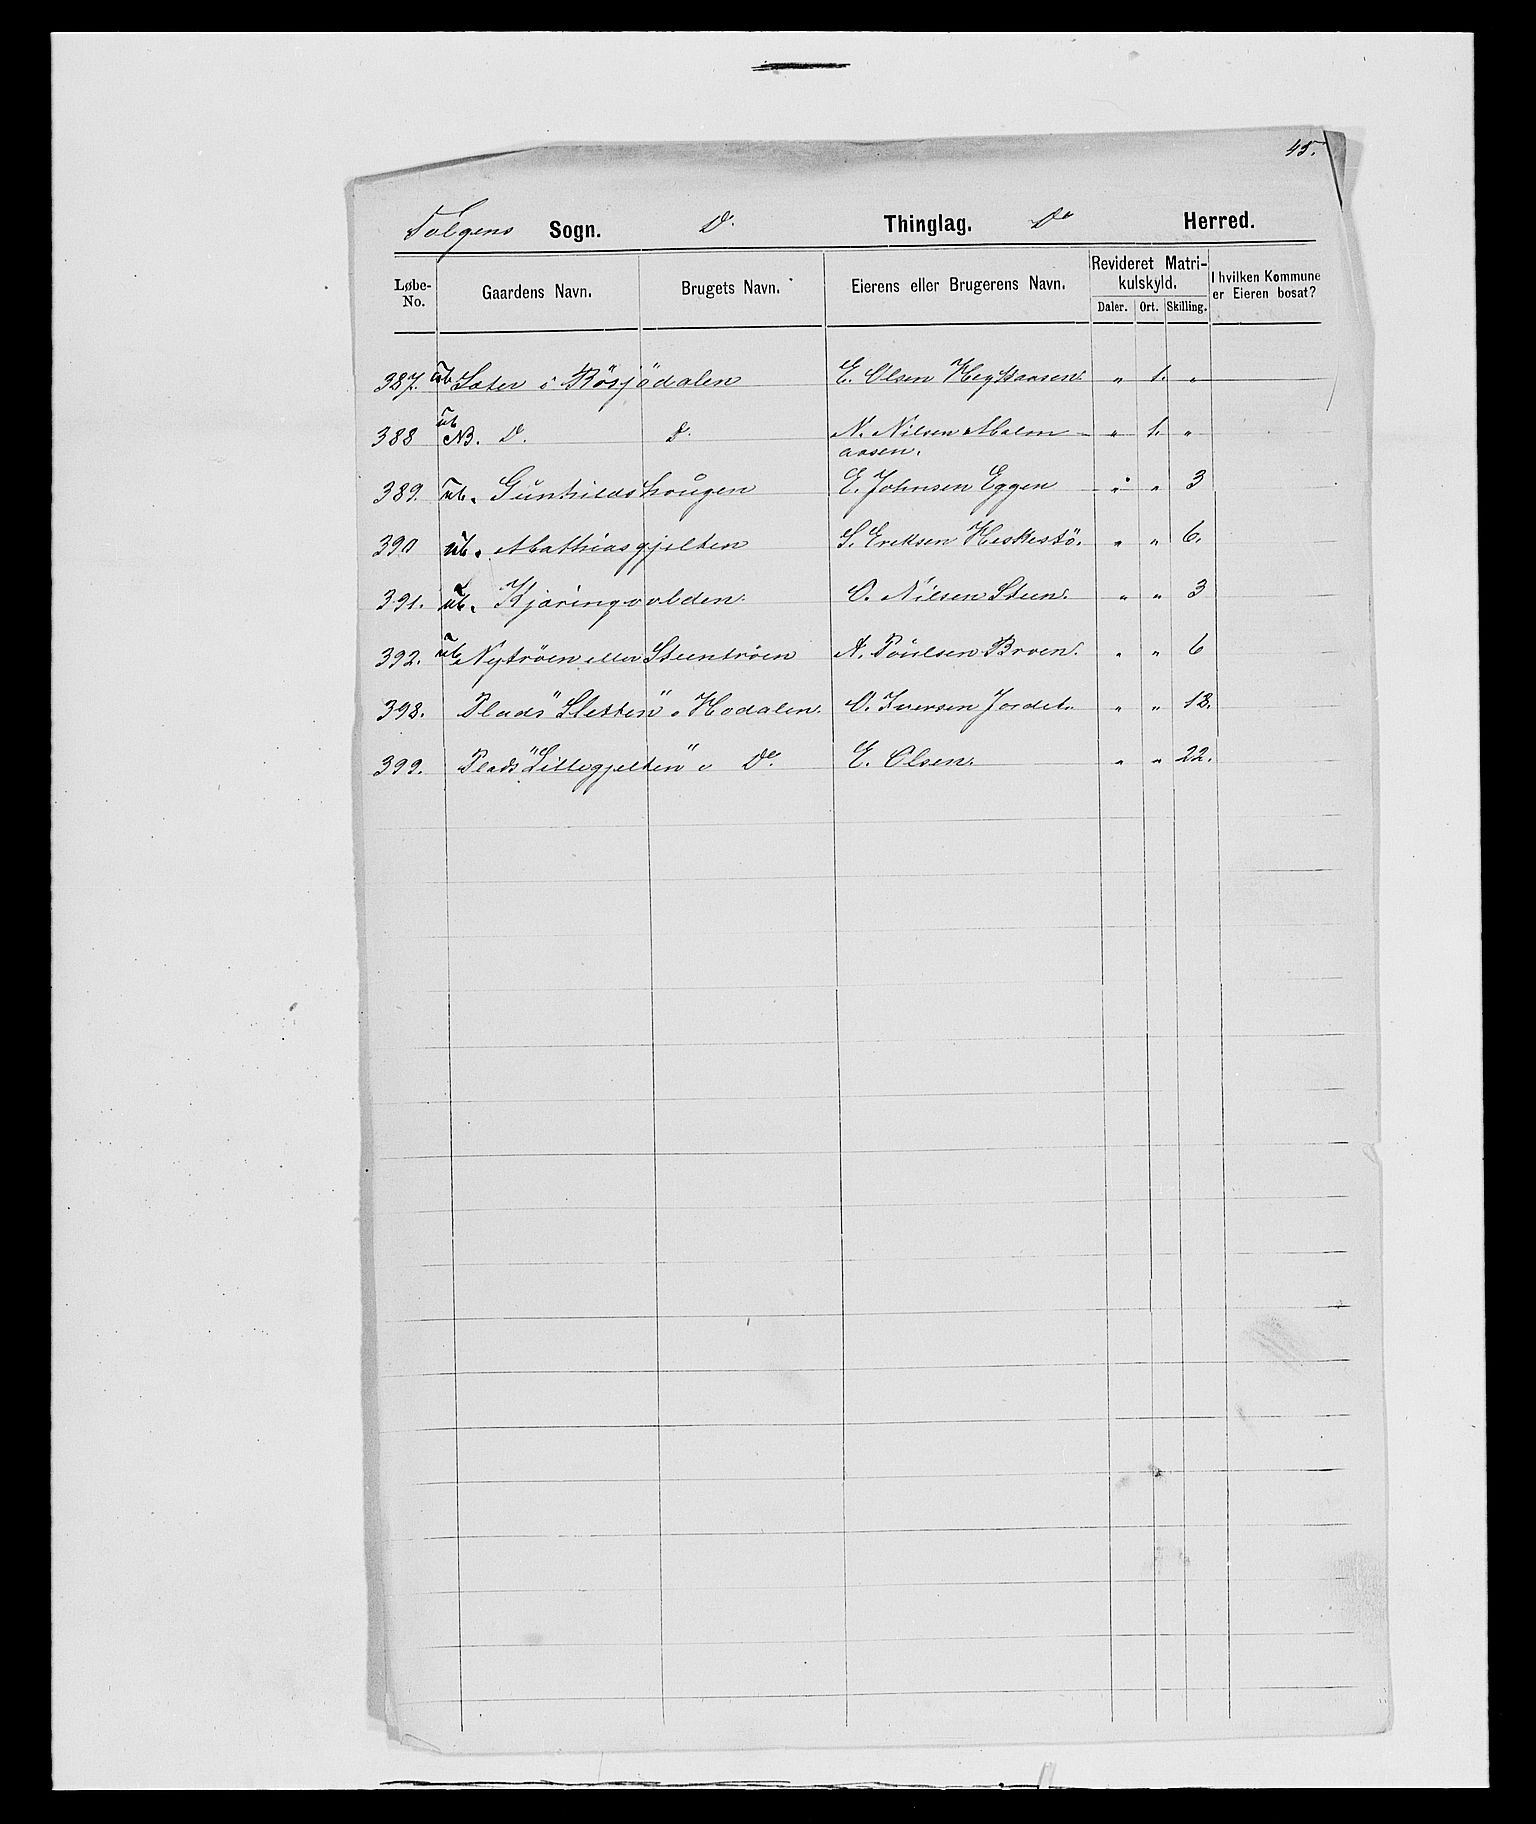 45.
Tolgens Sogn. Do Thinglag. Do Herred.
Løbe-No. Gaardens Navn. Brugets Navn. Eierens eller Brugerens Navn. Revideret Matrikulskyld. Daler. Ort. Skilling. I hvilken Kommune er Eieren bosat?
387. ub Sæter i Rösjödalen E. Olsen " 1. "
388 ub NB. Do. Do. N. Nilsen Malmaasen. " 1. "
389. ub. Gunhildshougen E. Johnsen Eggen " " 3
390 ub. Mathiasgjelten S. Eriksen " " 6.
391. ub. Kjæringvolden. O. Nilsen Steen. " " 3
392. ub Nytröen eller Steentröen A. Poulsen Broen. " " 6
398. Plads "Sletten" i Hodalen. O. Iversen Jordet. " " 12.
399. Plads "Littlegjelten" i Do. E. Olsen. " " 22.